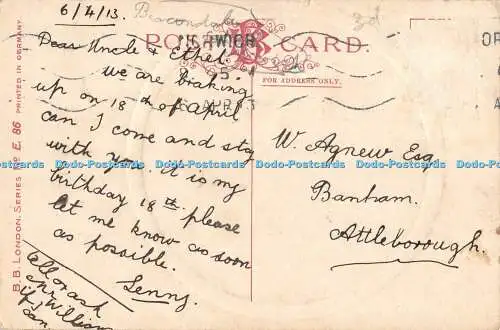 6/4/13.
3d
POST CARD.
NORWICH
FOR ADDRESS ONLY.
Dear Uncle & Ethel.
We are braking
up on 18th of April
can I come and stay
with you. it is my
birthday 18th please
let me know as soon
as possible.
Lenny.
W. Agnew Esq
Banham.
Attleborough.
B.B. LONDON. SERIES No E. 86 PRINTED IN GERMANY
Dodo-Postcards Dodo-Postcards Dodo-Postcards Dodo-Postcards Dodo-Postcards